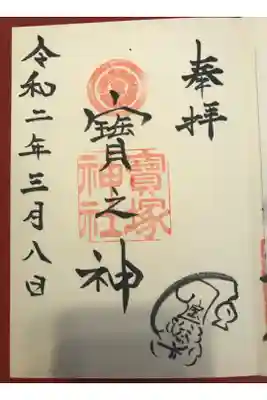 奉拝
寶之神
寶塚
神社
令和二年三月八日
宝